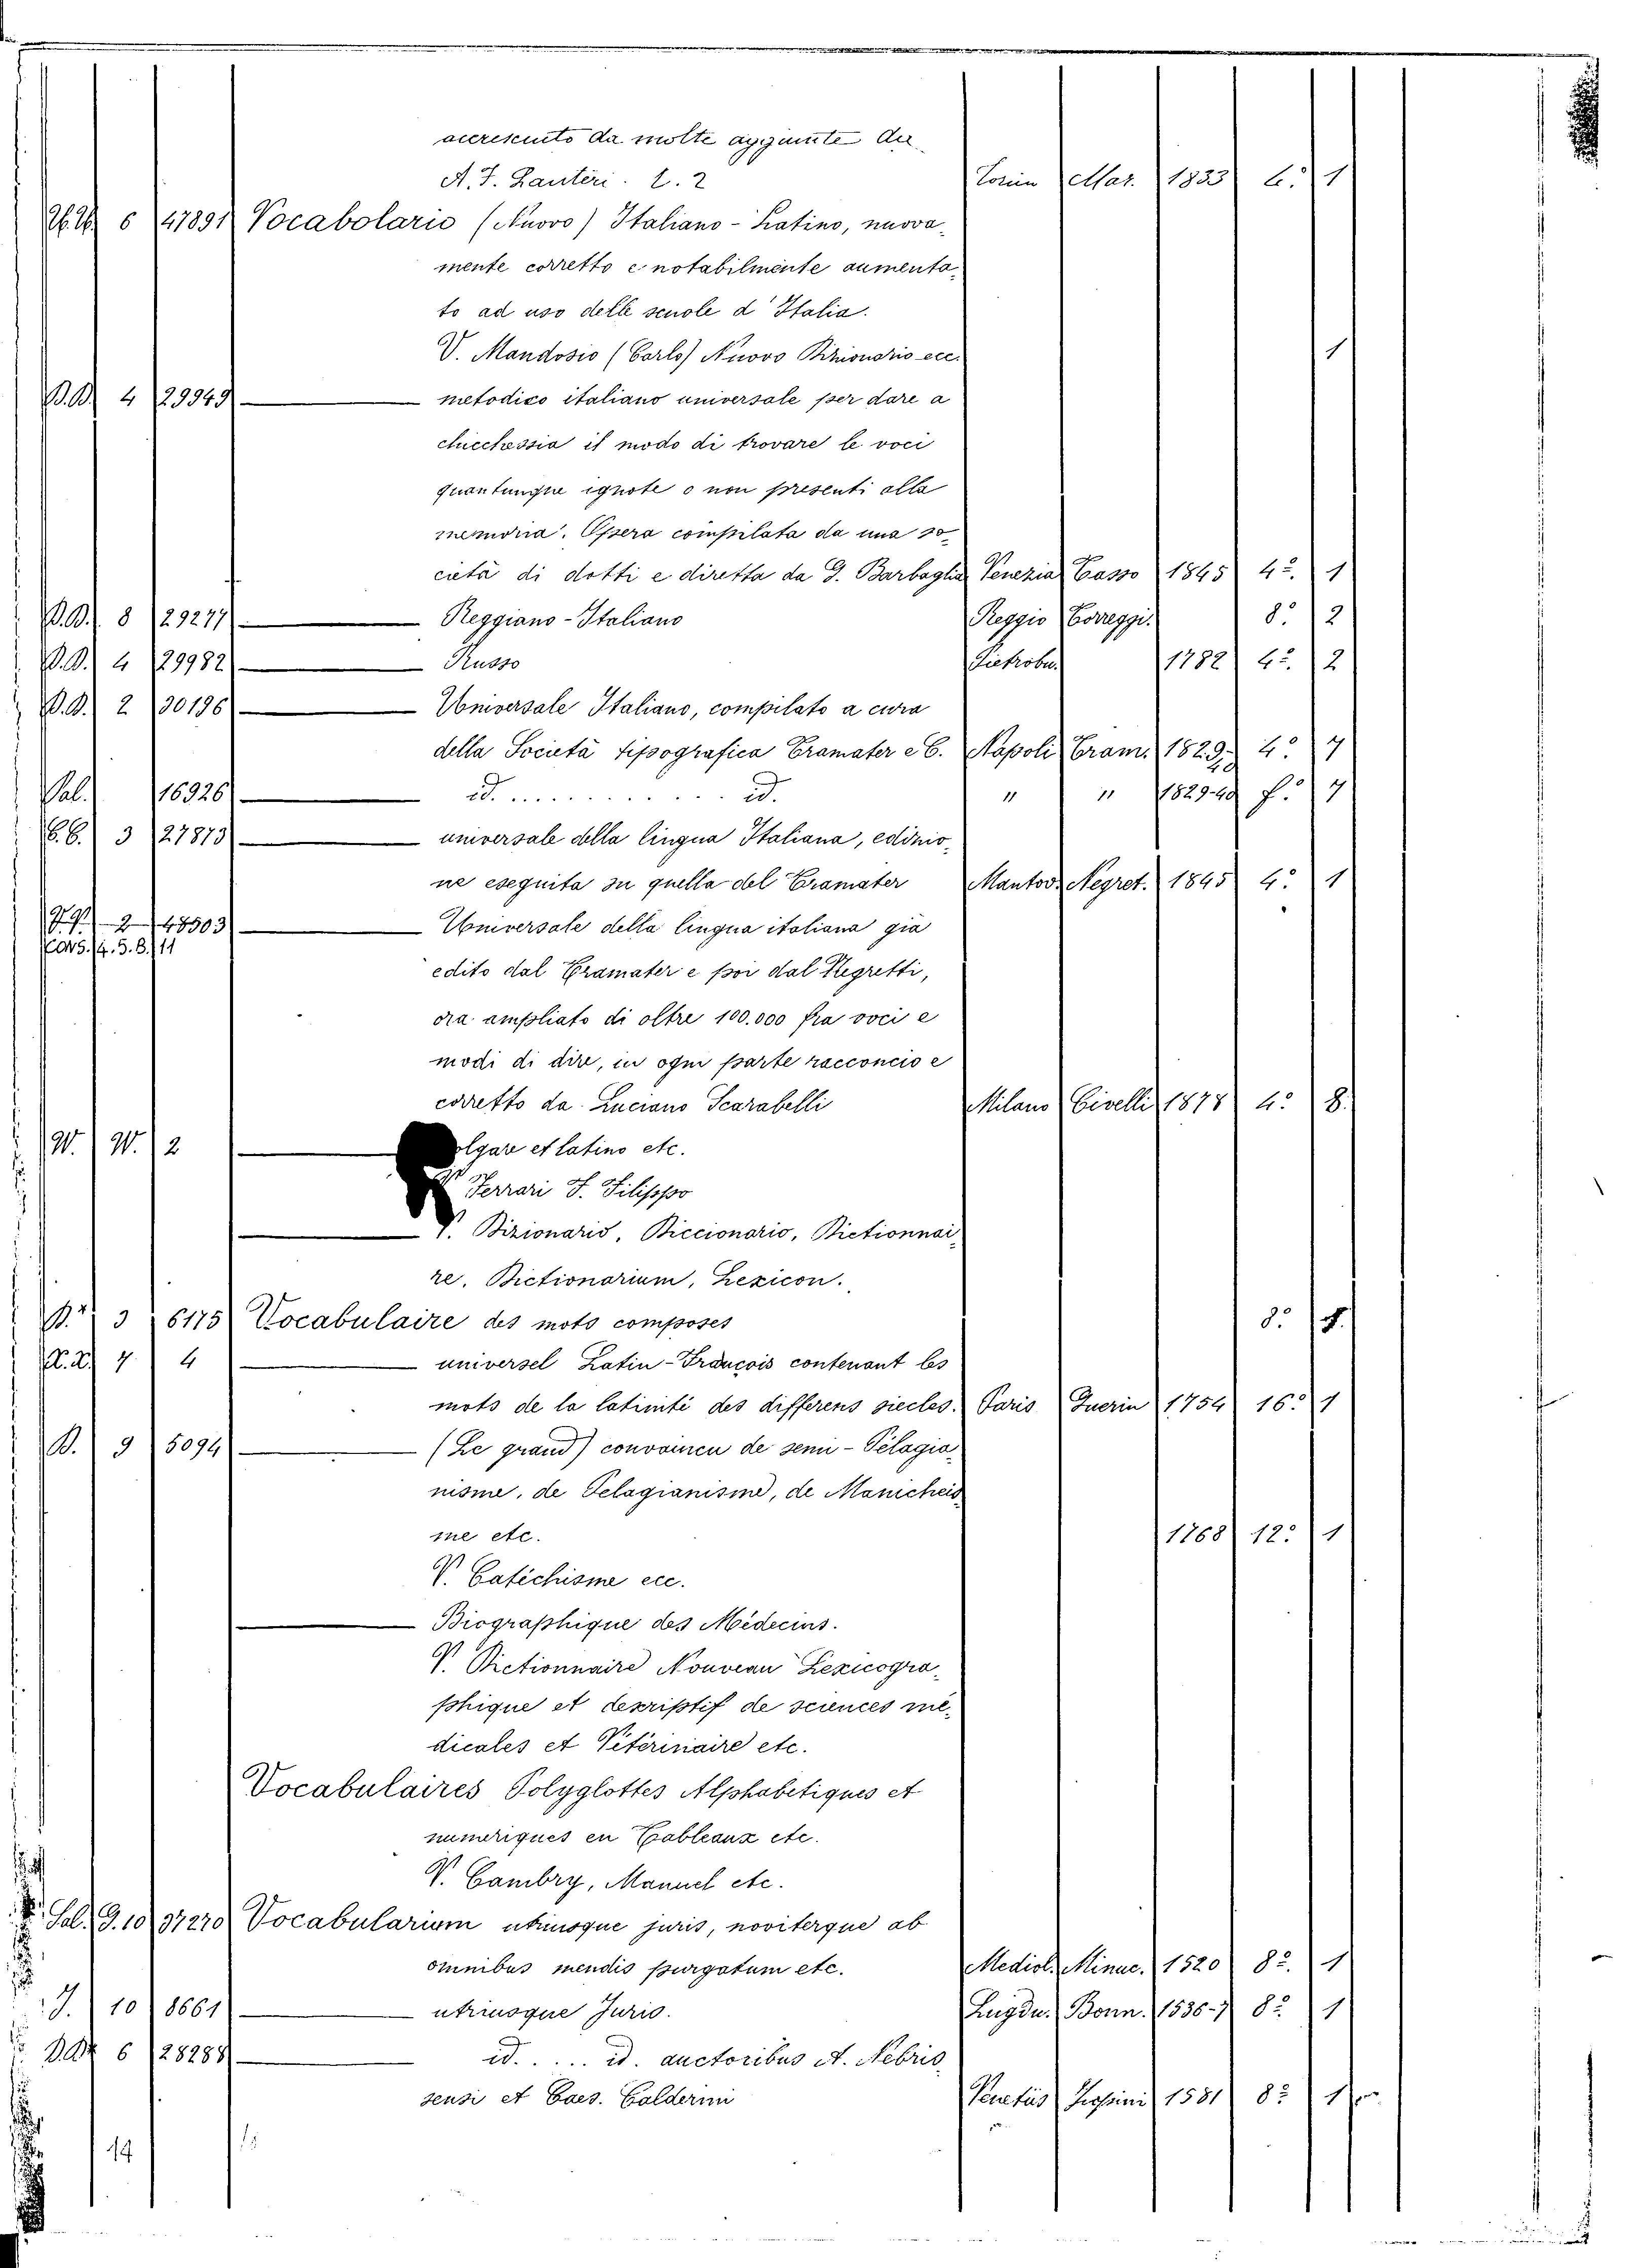 accresciuto da molte aggiunte da
A. F. Lanteri. L. 2 Torin Mar. 1833 4.° 1
6 47891 Vocabolario (Nuovo) Italiano - Latino, nuova-
mente corretto e notabilmente aumenta-
to ad uso delle scuole d'Italia.
V. Mandosio (Carlo) Nuovo Dizionario ecc. 1
B.B. 4 29949 — metodico italiano universale per dare a
chicchessia il modo di trovare le voci
quantunque ignote o non presenti alla
memoria. Opera compilata da una so-
cietà di dotti e diretta da G. Barbaglia Venezia Tasso 1845 4.° 1
B.B. 8 29277 — Reggiano - Italiano Reggio Torreggi. 8.° 2
B.B. 4 29982 — Russo Pietrobu. 1782 4.° 2
B.B. 2 30196 — Universale Italiano, compilato a cura
della Società tipografica Tramater e C. Napoli Tram. 1829 4.° 7
Pal. 16926 — id. . . . . . . . . . . . id. " " 1829-40 f.° 7
C.C. 3 27873 — universale della lingua Italiana, edizio-
ne eseguita su quella del Tramater Mantov. Negret. 1845 4.° 1
2 48503 — Universale della lingua italiana già
CONS. 4. 5. B. 11
edito dal Tramater e poi dal Negretti,
ora ampliato di oltre 100.000 fra voci e
modi di dire, in ogni parte racconcio e
corretto da Luciano Scarabelli Milano Civelli 1878 4.° 8.
W. W. 2 — olgare et latino etc.
Ferrari F. Filippo
— V. Dizionario, Diccionario, Dictionnai-
re, Dictionarium, Lexicon.
3 6175 Vocabulaire des mots composes 8.°
7 4 — universel Latin-François contenant les
mots de la latinité des differens siecles. Paris Guerin 1754 16.° 1
B. 9 5094 — (Le grand) convaincu de semi - Pèlagia-
nisme, de Pelagianisme, de Manicheis-
me etc. 1768 12.° 1
V. Catéchisme ecc.
— Biographique des Médecins.
V. Dictionnaire Nouveau Lexicogra-
phique et descriptif de sciences mé-
dicales et Vétérinaire etc.
Vocabulaires Polyglottes Alphabetiques et
numeriques en Tableaux etc.
V. Cambry, Manuel etc.
Sal. G. 10 37270 Vocabularium utriusque juris, noviterque ab
omnibus mendis purgatum etc. Mediol. Minuc. 1520 8.° 1
J. 10 8661 — utriusque Juris. Lugdu. Bonn. 1536-7 8.° 1
6 28288 — id. . . . . id. auctoribus A. Nebris-
sensi et Caes. Calderini Venetiis 1581 8.° 1
14